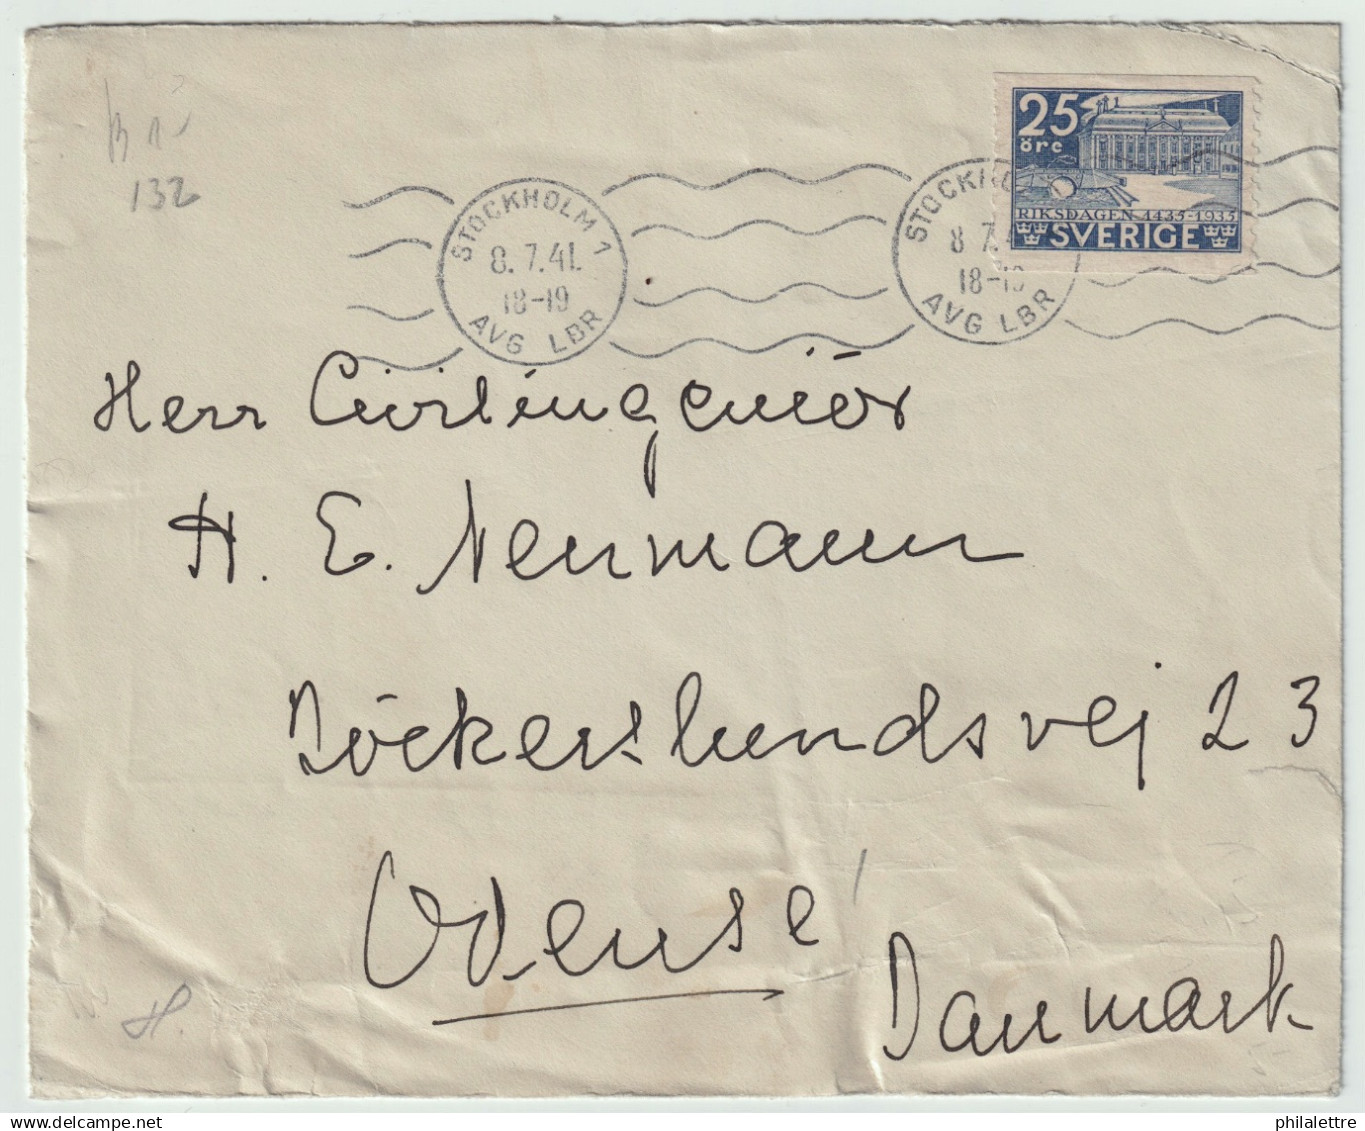 132
25
öre
RIKSDAGEN 1435-1935
SVERIGE
STOCKHOLM 1
8.7.41.
18-19
AVG LBR
8 7.4
18-19
AVG LBR
Herr Civilingeniör
H. E. Neumann
Döckerslundsvej 23
Odense
Danmark
H.
philalettre